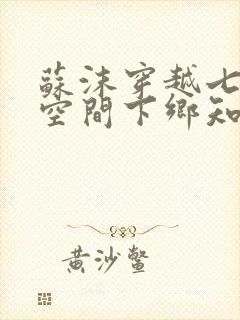 蘇沫穿越七
空間下鄉知
黃沙鱉